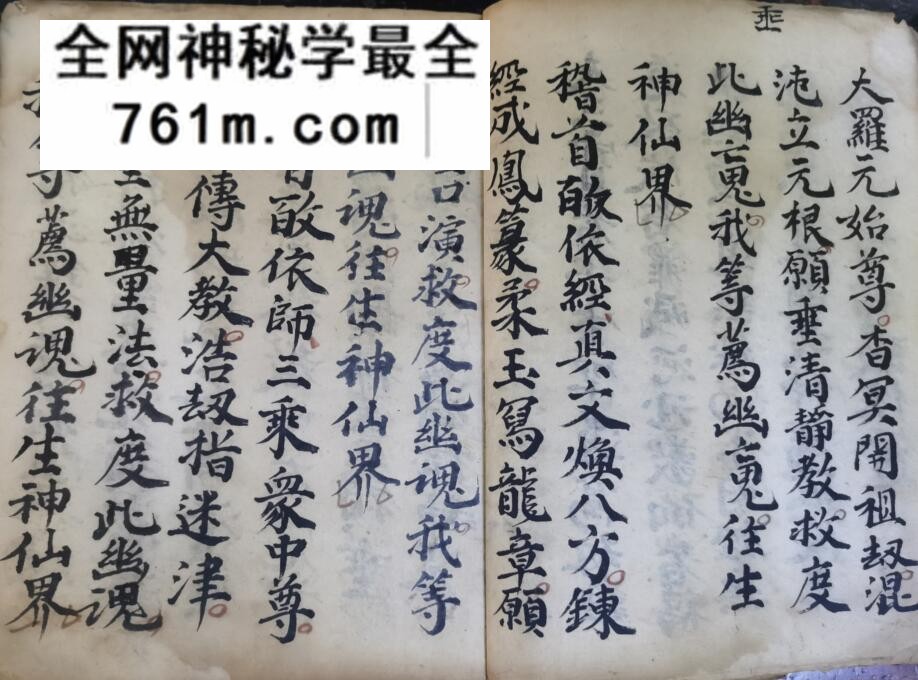 全网神秘学最全
761m.com
大羅元始尊杳冥開祖劫混
沌立元根願垂清静教救度
此幽䰟我等薦幽䰟往生
神仙界
稽首皈依經真文煥八方錬
經成鳳篆柔玉寫龍章願
演救度此幽魂我等
魂往生神仙界
皈依師三乘衆中尊
傳大教浩劫指迷津
無量法救度此幽魂
等薦幽魂往生神仙界